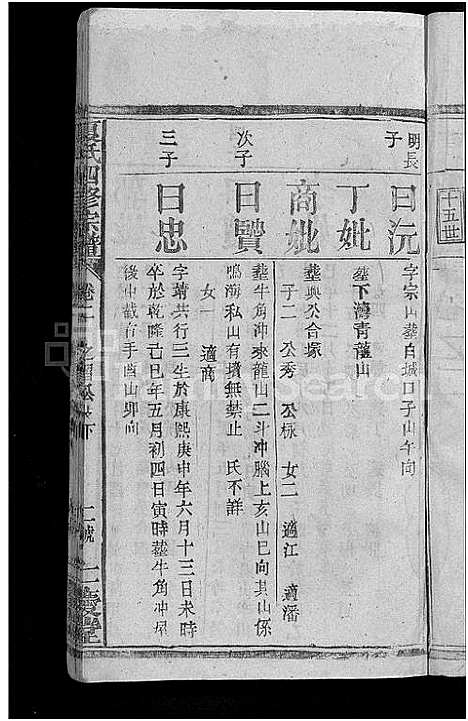 十五世
明長子
曰沅
字宗山葬白城口子山午向
丁妣
葬下灣青龍山
商妣
葬與公合塚
子二 公秀 公極 女二 適江 適潘
次子
曰贒
葬牛角冲來龍山二斗冲腦上亥山巳向其山係
鳴海私山有墳無禁止 氏不詳
女一 適商
三子
曰忠
字靖共行三生於康熙庚申年六月十三日未時
卒於乾隆己巳年五月初四日寅時葬牛角冲屋
後中嶯右手酉山卯向
夏氏四修宗譜
卷二
二號
仁慶堂